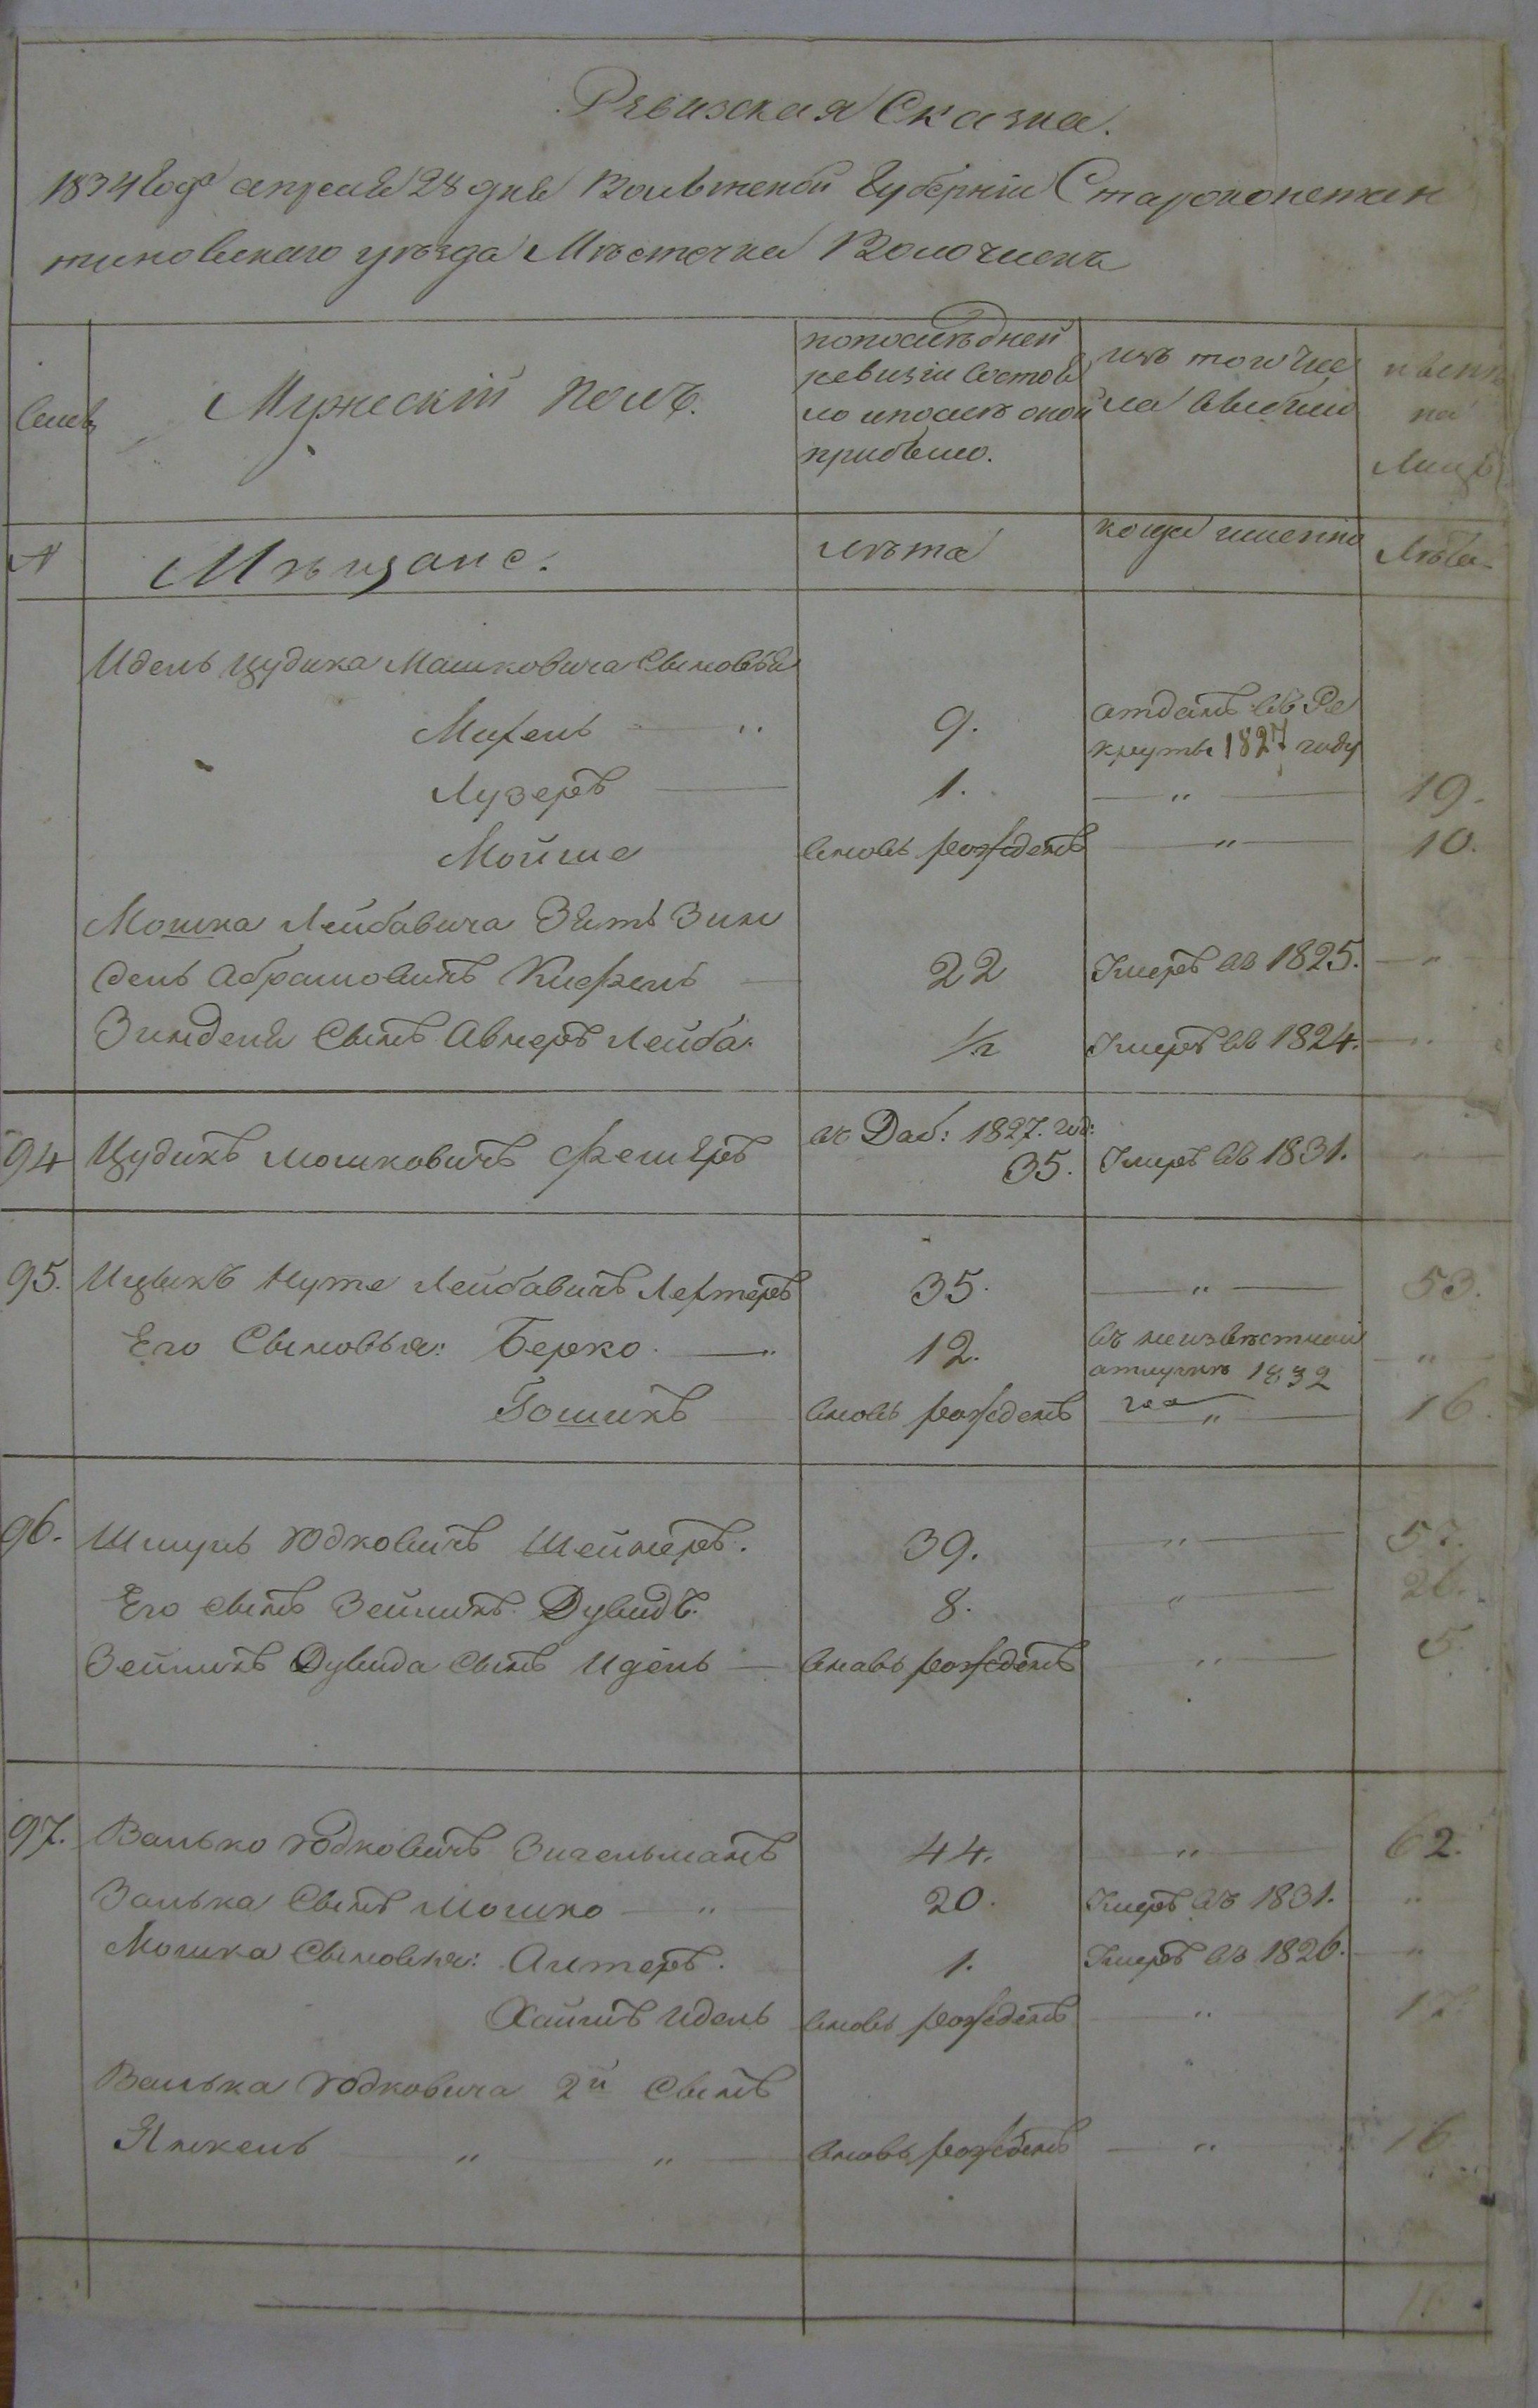 Ревизская Сказка.
1834 Года апреля 28 дня Волынской Губернiи Староконстан
тиновского уѣзда Мѣстечка Волочискъ
Семей
Мужескiй полъ.
попослѣдней
ревизiи Состоя
ло ипослѣ оной
прибыло.
изъ того Чис
ла Выбыло
нынѣ
на
Лицо
N
Мѣщане.
лѣта
когда именно
Лѣта
Идель Цудика Машковича Сыновья
Михель " 9. отданъ въ Ре
круты 1827 году
Лузеръ 1. " 19.
Мойше вновь рожденъ " 10.
Мошка Лейбовича Зять Зин
дель Абрамовичъ 22 Умеръ въ 1825. "
Зинделя Сынъ Авнеръ Лейба. 1/2 Умеръ въ 1824. "
94 Цудикъ мошковичъ въ Доб: 1827. год:
35. Умеръ въ 1831. "
95. Ицыкъ Нута Лейбовичъ Лехтеръ 35. " 53.
Его Сыновья: Берко " 12. въ неизвѣстной
отлучкѣ 1832 "
Гошикъ вновь рожденъ го " 16.
96. Шмуль Юдковичъ Шейнеръ. 39. " 57.
Его сынъ Зейликъ Дувидъ. 8. " 26.
Зейликъ Дувида Сынъ Идель вновь рожденъ " 5.
97. Валько Юдковичъ Зигельманъ 44. " 62.
Валька Сынъ Мошко " 20. Умеръ въ 1831. "
Мошка Сыновья: Алтеръ. 1. Умеръ въ 1826. "
Хаимъ Идель вновь рожденъ " 17.
Валька Юдковича 2й Сынъ
Янкель " " вновь рожденъ " 16